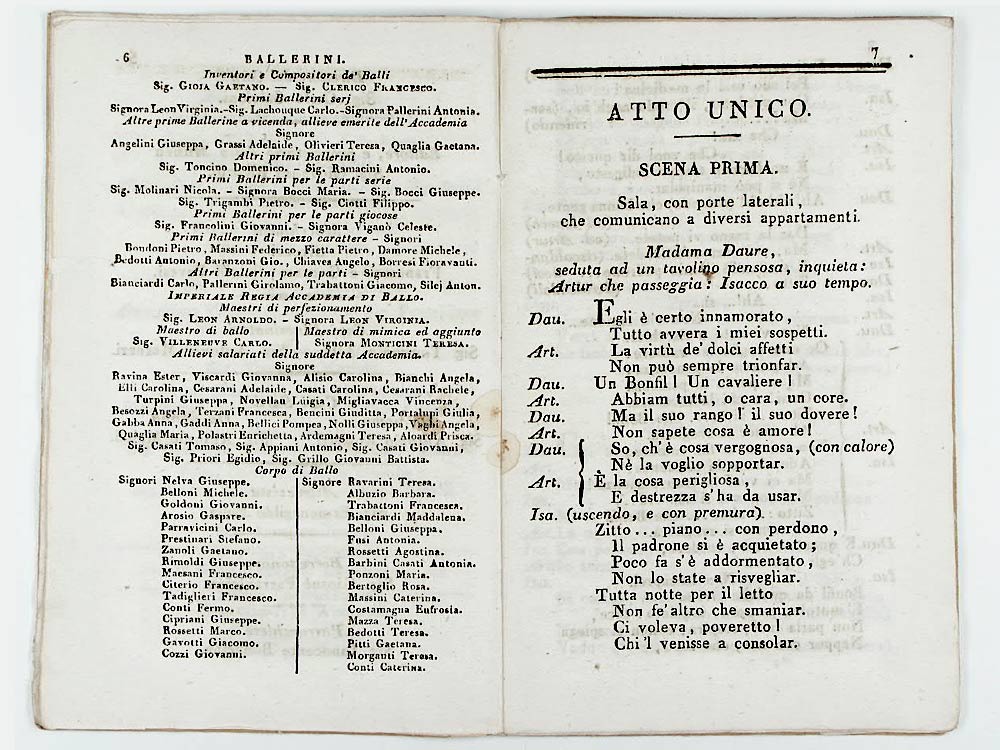 6
BALLERINI.
Inventori e Compositori de' Balli
Sig. GIOJA GAETANO. — Sig. CLERICO FRANCESCO.
Primi Ballerini serj
Signora Leon Virginia.-Sig. Lachouque Carlo.-Signora Pallerini Antonia.
Altre prime Ballerine a vicenda, allieve emerite dell'Accademia
Signore
Angelini Giuseppa, Grassi Adelaide, Olivieri Teresa, Quaglia Gaetana.
Altri primi Ballerini
Sig. Toncino Domenico. - Sig. Ramacini Antonio.
Primi Ballerini per le parti serie
Sig. Molinari Nicola. - Signora Bocci Maria. - Sig. Bocci Giuseppe.
Sig. Trigambi Pietro. - Sig. Ciotti Filippo.
Primi Ballerini per le parti giocose
Sig. Francolini Giovanni. - Signora Viganò Celeste.
Primi Ballerini di mezzo carattere - Signori
Bondoni Pietro, Massini Federico, Fietta Pietro, Damore Michele,
Bedotti Antonio, Baranzoni Gio., Chiaves Angelo, Borresi Fioravanti.
Altri Ballerini per le parti - Signori
Bianciardi Carlo, Pallerini Girolamo, Trabattoni Giacomo, Silej Anton.
IMPERIALE REGIA ACCADEMIA DI BALLO.
Maestri di perfezionamento
Sig. LEON ARNOLDO. - Signora LEON VIRGINIA.
Maestro di ballo | Maestro di mimica ed aggiunto
Sig. VILLENEUVE CARLO. | Signora MONTICINI TERESA.
Allievi salariati della suddetta Accademia.
Signore
Ravina Ester, Viscardi Giovanna, Alisio Carolina, Bianchi Angela,
Elli Carolina, Cesarani Adelaide, Casati Carolina, Cesarani Rachele,
Turpini Giuseppa, Novellau Luigia, Migliavacca Vincenza,
Besozzi Angela, Terzani Francesca, Bencini Giuditta, Portalupi Giulia,
Gabba Anna, Gaddi Anna, Bellici Pompea, Nolli Giuseppa, Vaghi Angela,
Quaglia Maria, Polastri Enrichetta, Ardemagni Teresa, Aloardi Prisca.
Sig. Casati Tomaso, Sig. Appiani Antonio, Sig. Casati Giovanni,
Sig. Priori Egidio, Sig. Grillo Giovanni Battista.
Corpo di Ballo
Signori Nelva Giuseppe.
Belloni Michele.
Goldoni Giovanni.
Arosio Gaspare.
Parravicini Carlo.
Prestinari Stefano.
Zanoli Gaetano.
Rimoldi Giuseppe.
Maesani Francesco.
Citerio Francesco.
Tadiglieri Francesco.
Conti Fermo.
Cipriani Giuseppe.
Rossetti Marco.
Gavotti Giacomo.
Cozzi Giovanni.
Signore Ravarini Teresa.
Albuzio Barbara.
Trabattoni Francesca.
Bianciardi Maddalena.
Belloni Giuseppa.
Fusi Antonia.
Rossetti Agostina.
Barbini Casati Antonia.
Ponzoni Maria.
Bertoglio Rosa.
Massini Caterina.
Costamagna Eufrosia.
Mazza Teresa.
Bedotti Teresa.
Pitti Gaetana.
Morganti Teresa.
Conti Caterina.
7
ATTO UNICO.
SCENA PRIMA.
Sala, con porte laterali,
che comunicano a diversi appartamenti.
Madama Daure,
seduta ad un tavolino pensosa, inquieta:
Artur che passeggia: Isacco a suo tempo.
Dau. Egli è certo innamorato,
Tutto avvera i miei sospetti.
Art. La virtù de' dolci affetti
Non può sempre trionfar.
Dau. Un Bonfil! Un cavaliere!
Art. Abbiam tutti, o cara, un core.
Dau. Ma il suo rango! il suo dovere!
Art. Non sapete cosa è amore!
Dau. So, ch'è cosa vergognosa, (con calore)
Nè la voglio sopportar.
Art. È la cosa perigliosa,
E destrezza s'ha da usar.
Isa. (uscendo, e con premura).
Zitto... piano... con perdono,
Il padrone si è acquietato;
Poco fa s'è addormentato,
Non lo state a risvegliar.
Tutta notte per il letto
Non fe' altro che smaniar.
Ci voleva, poveretto!
Chi 'l venisse a consolar.